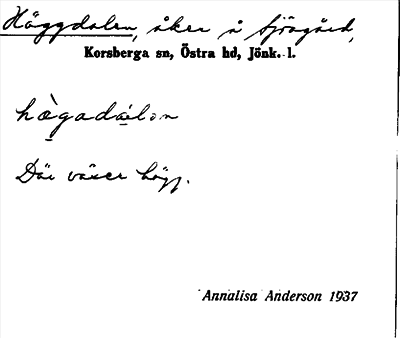 Häggdalen, åker å Sjögård,
Korsberga sn, Östra hd, Jönk. l.
hä̀gadálən
Där växer hägg.
Annalisa Anderson 1937